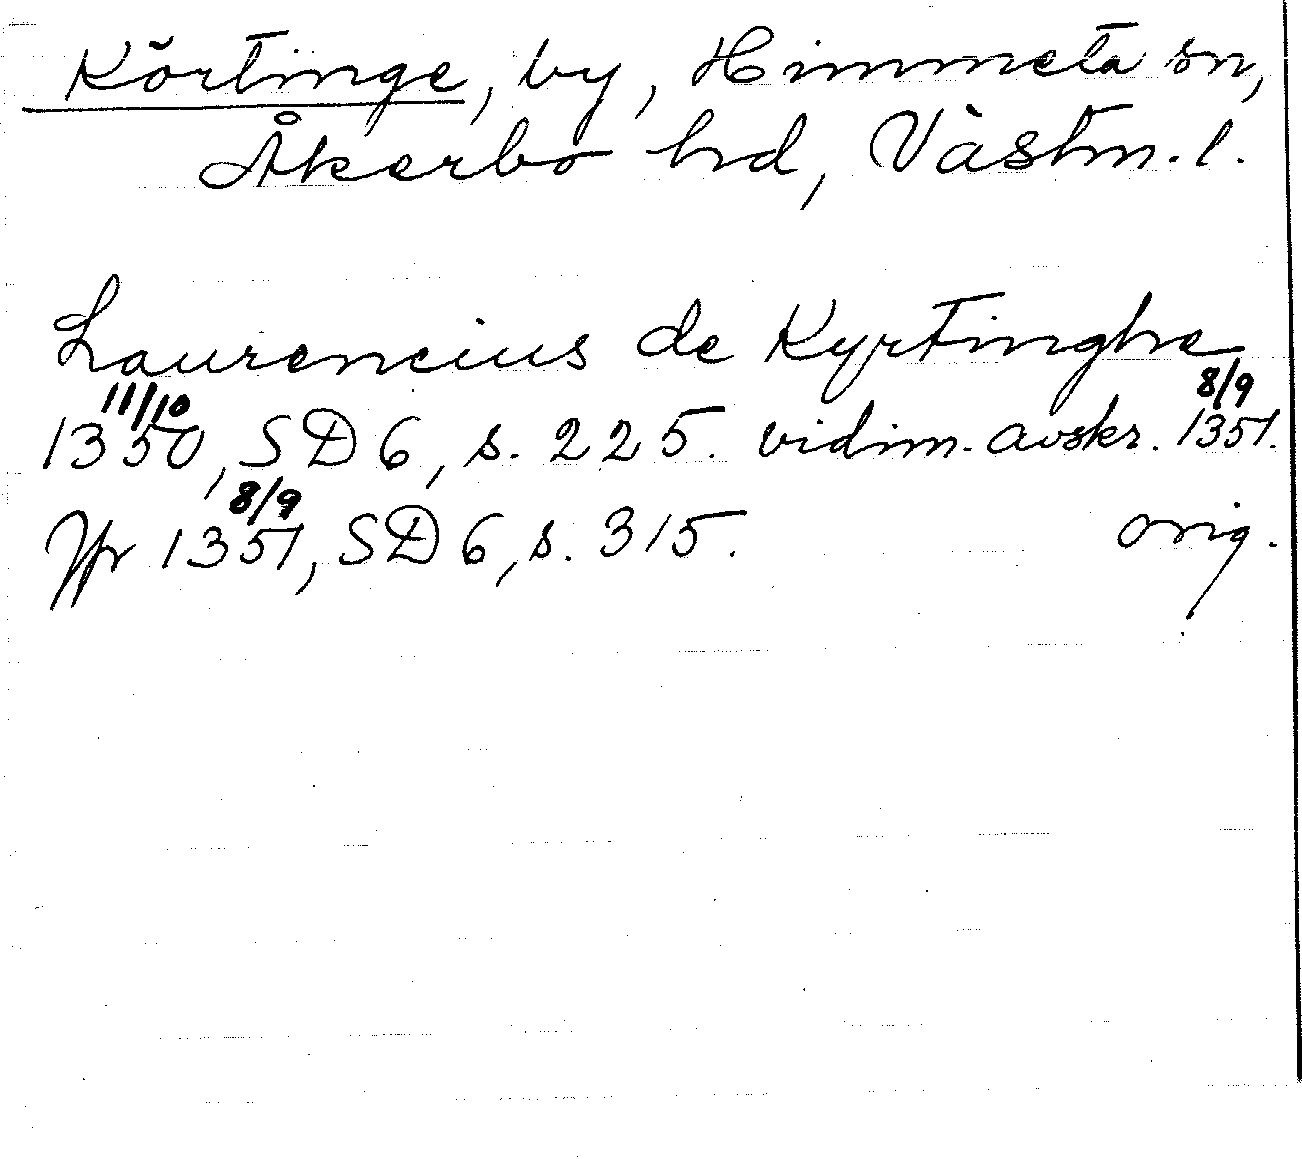 Körtinge, by, Himmeta sn,
Åkerbo hd, Västm. l.
Laurencius de Kyrtinghe
11/10 8/9
1350, SD 6, s. 225. vidim. avskr. 1351.
8/9
Jfr 1351, SD 6, s. 315. orig.